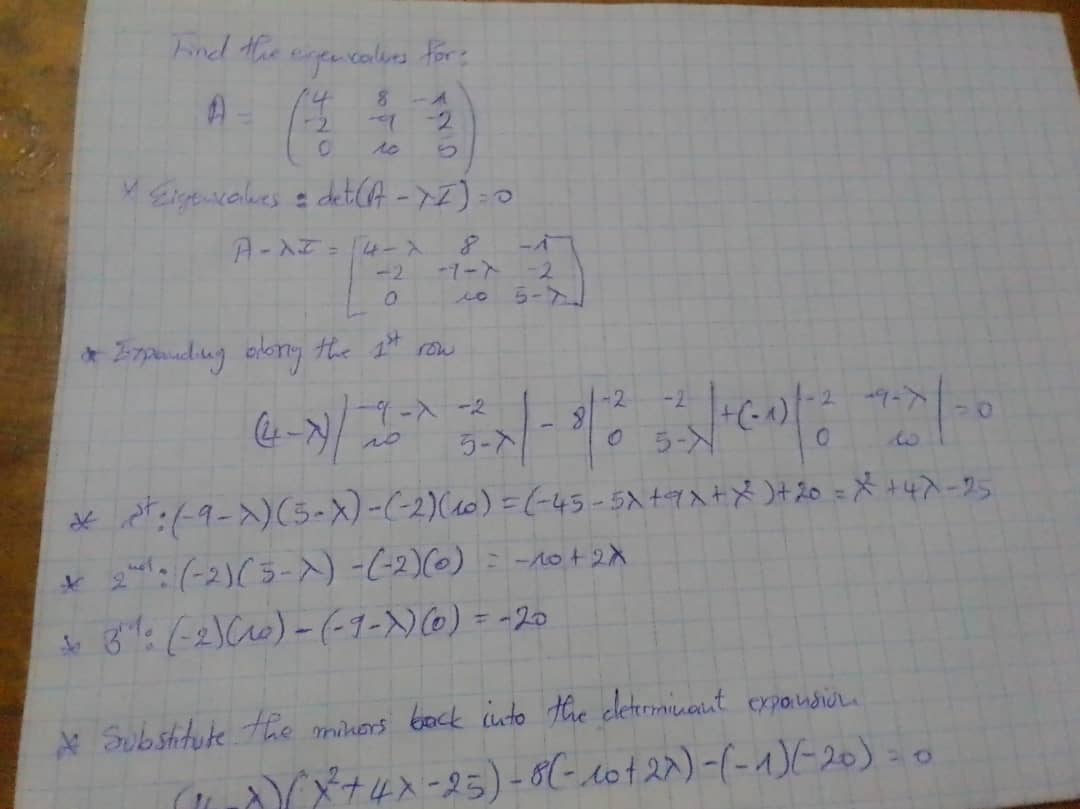 Find the eigenvalues for:
A = (4 8 -1
-2 -9 -2
0 10 5)
* Eigenvalues : det(A - λI) = 0
A - λI = [4-λ 8 -1
-2 -9-λ -2
0 10 5-λ]
* Expanding along the 1st row
(4-λ) |-9-λ -2| - 8 |-2 -2| + (-1) |-2 -9-λ| = 0
|10 5-λ| |0 5-λ| |0 10|
* 1st: (-9-λ)(5-λ) - (-2)(10) = (-45-5λ+9λ+λ²)+20 = λ²+4λ-25
* 2nd: (-2)(5-λ) - (-2)(0) = -10+2λ
* 3rd: (-2)(10) - (-9-λ)(0) = -20
* Substitute the minors back into the determinant expansion
(4-λ)(λ²+4λ-25) - 8(-10+2λ) - (-1)(-20) = 0